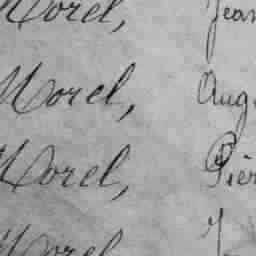 Morel, Jean
Morel, Aug
Morel, Pier
Morel